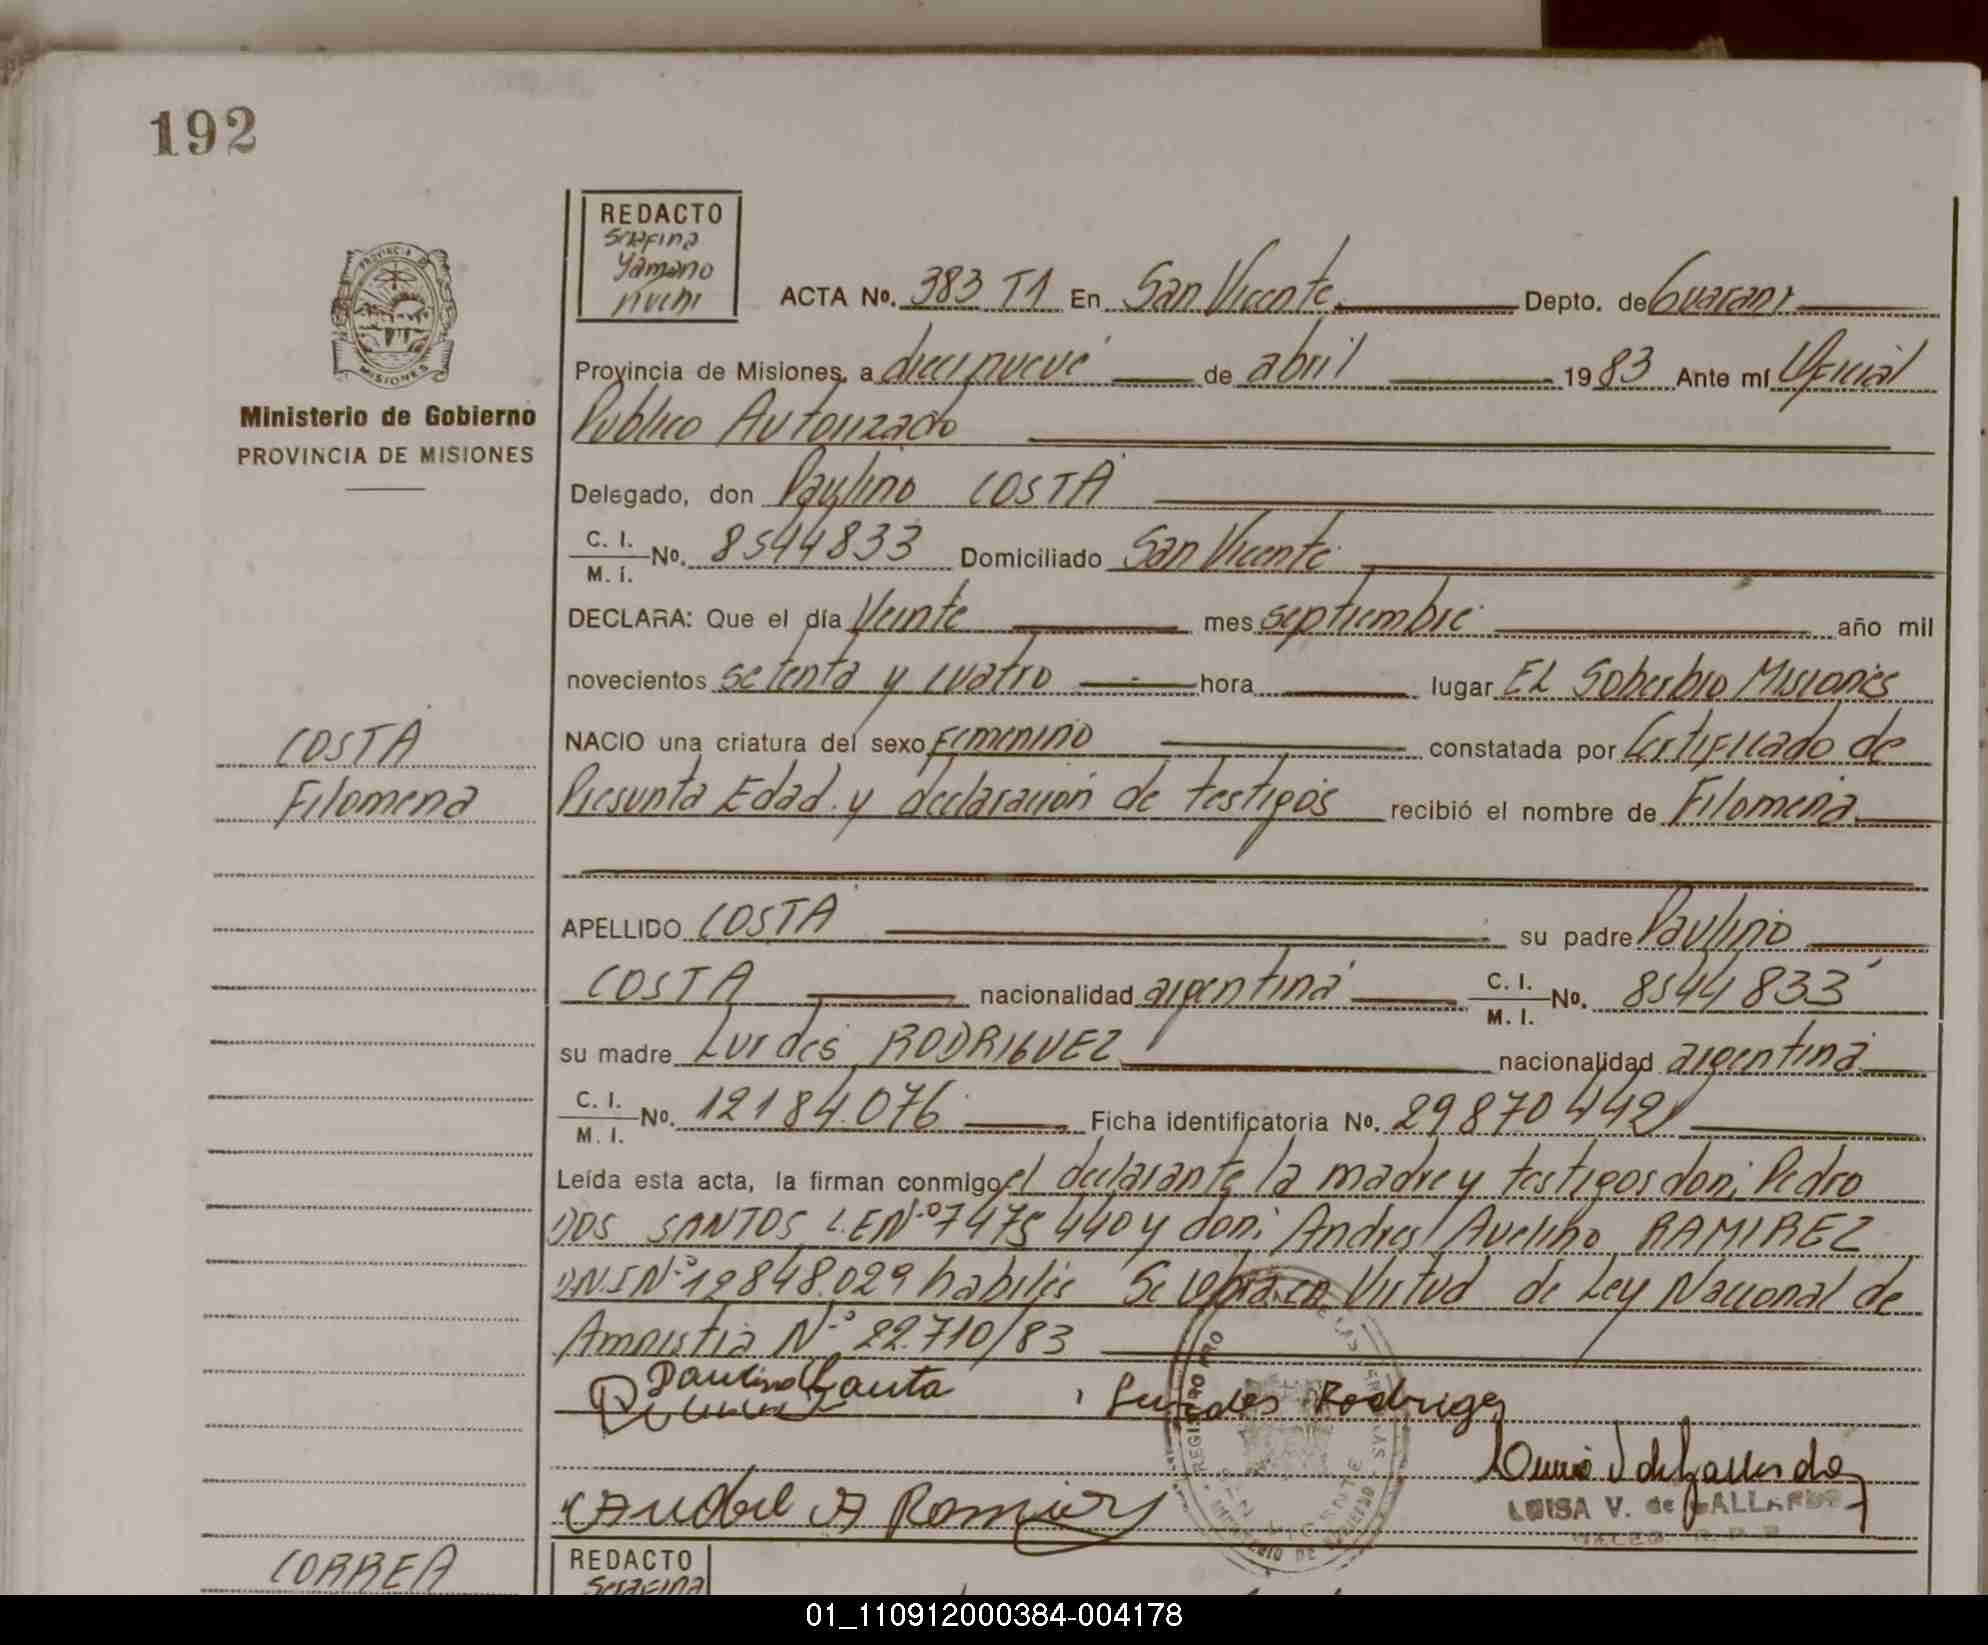 192
REDACTO
Serafina
Yamano
PROVINCIA DE
MISIONES
ACTA No. 383 T1 En San Vicente Depto. de Guarani
Provincia de Misiones, a diecinueve de abril 1983 Ante mí Oficial
Publico Autorizado
Ministerio de Gobierno
PROVINCIA DE MISIONES
Delegado, don Paulino COSTA
C. I.
M. I. No. 8544833 Domiciliado San Vicente
DECLARA: Que el día Veinte mes septiembre año mil
novecientos setenta y cuatro hora lugar EL Soberbio Misiones
NACIO una criatura del sexo Femenino constatada por Certificado de
Presunta Edad y declaracion de testigos recibió el nombre de Filomena
COSTA
Filomena
APELLIDO COSTA su padre Paulino
COSTA nacionalidad argentina C. I.
M. I. No. 8544833
su madre Lurdes RODRIGUEZ nacionalidad argentina
C. I.
M. I. No. 12184.076 Ficha identificatoria No. 29870442
Leída esta acta, la firman conmigo el declarante la madre y testigos don: Pedro
DOS SANTOS L.E Nº 7475440 y don: Andres Avelino RAMIREZ
DNI Nº 12848.029 habiles Se labra en Virtud de Ley Nacional de
Amnistia Nº 22.710/83
Paulino Lurdes Rodriguez
LUISA V. de GALLARDO
SAN VICENTE
CORREA
REDACTO
Serafina
01_110912000384-004178